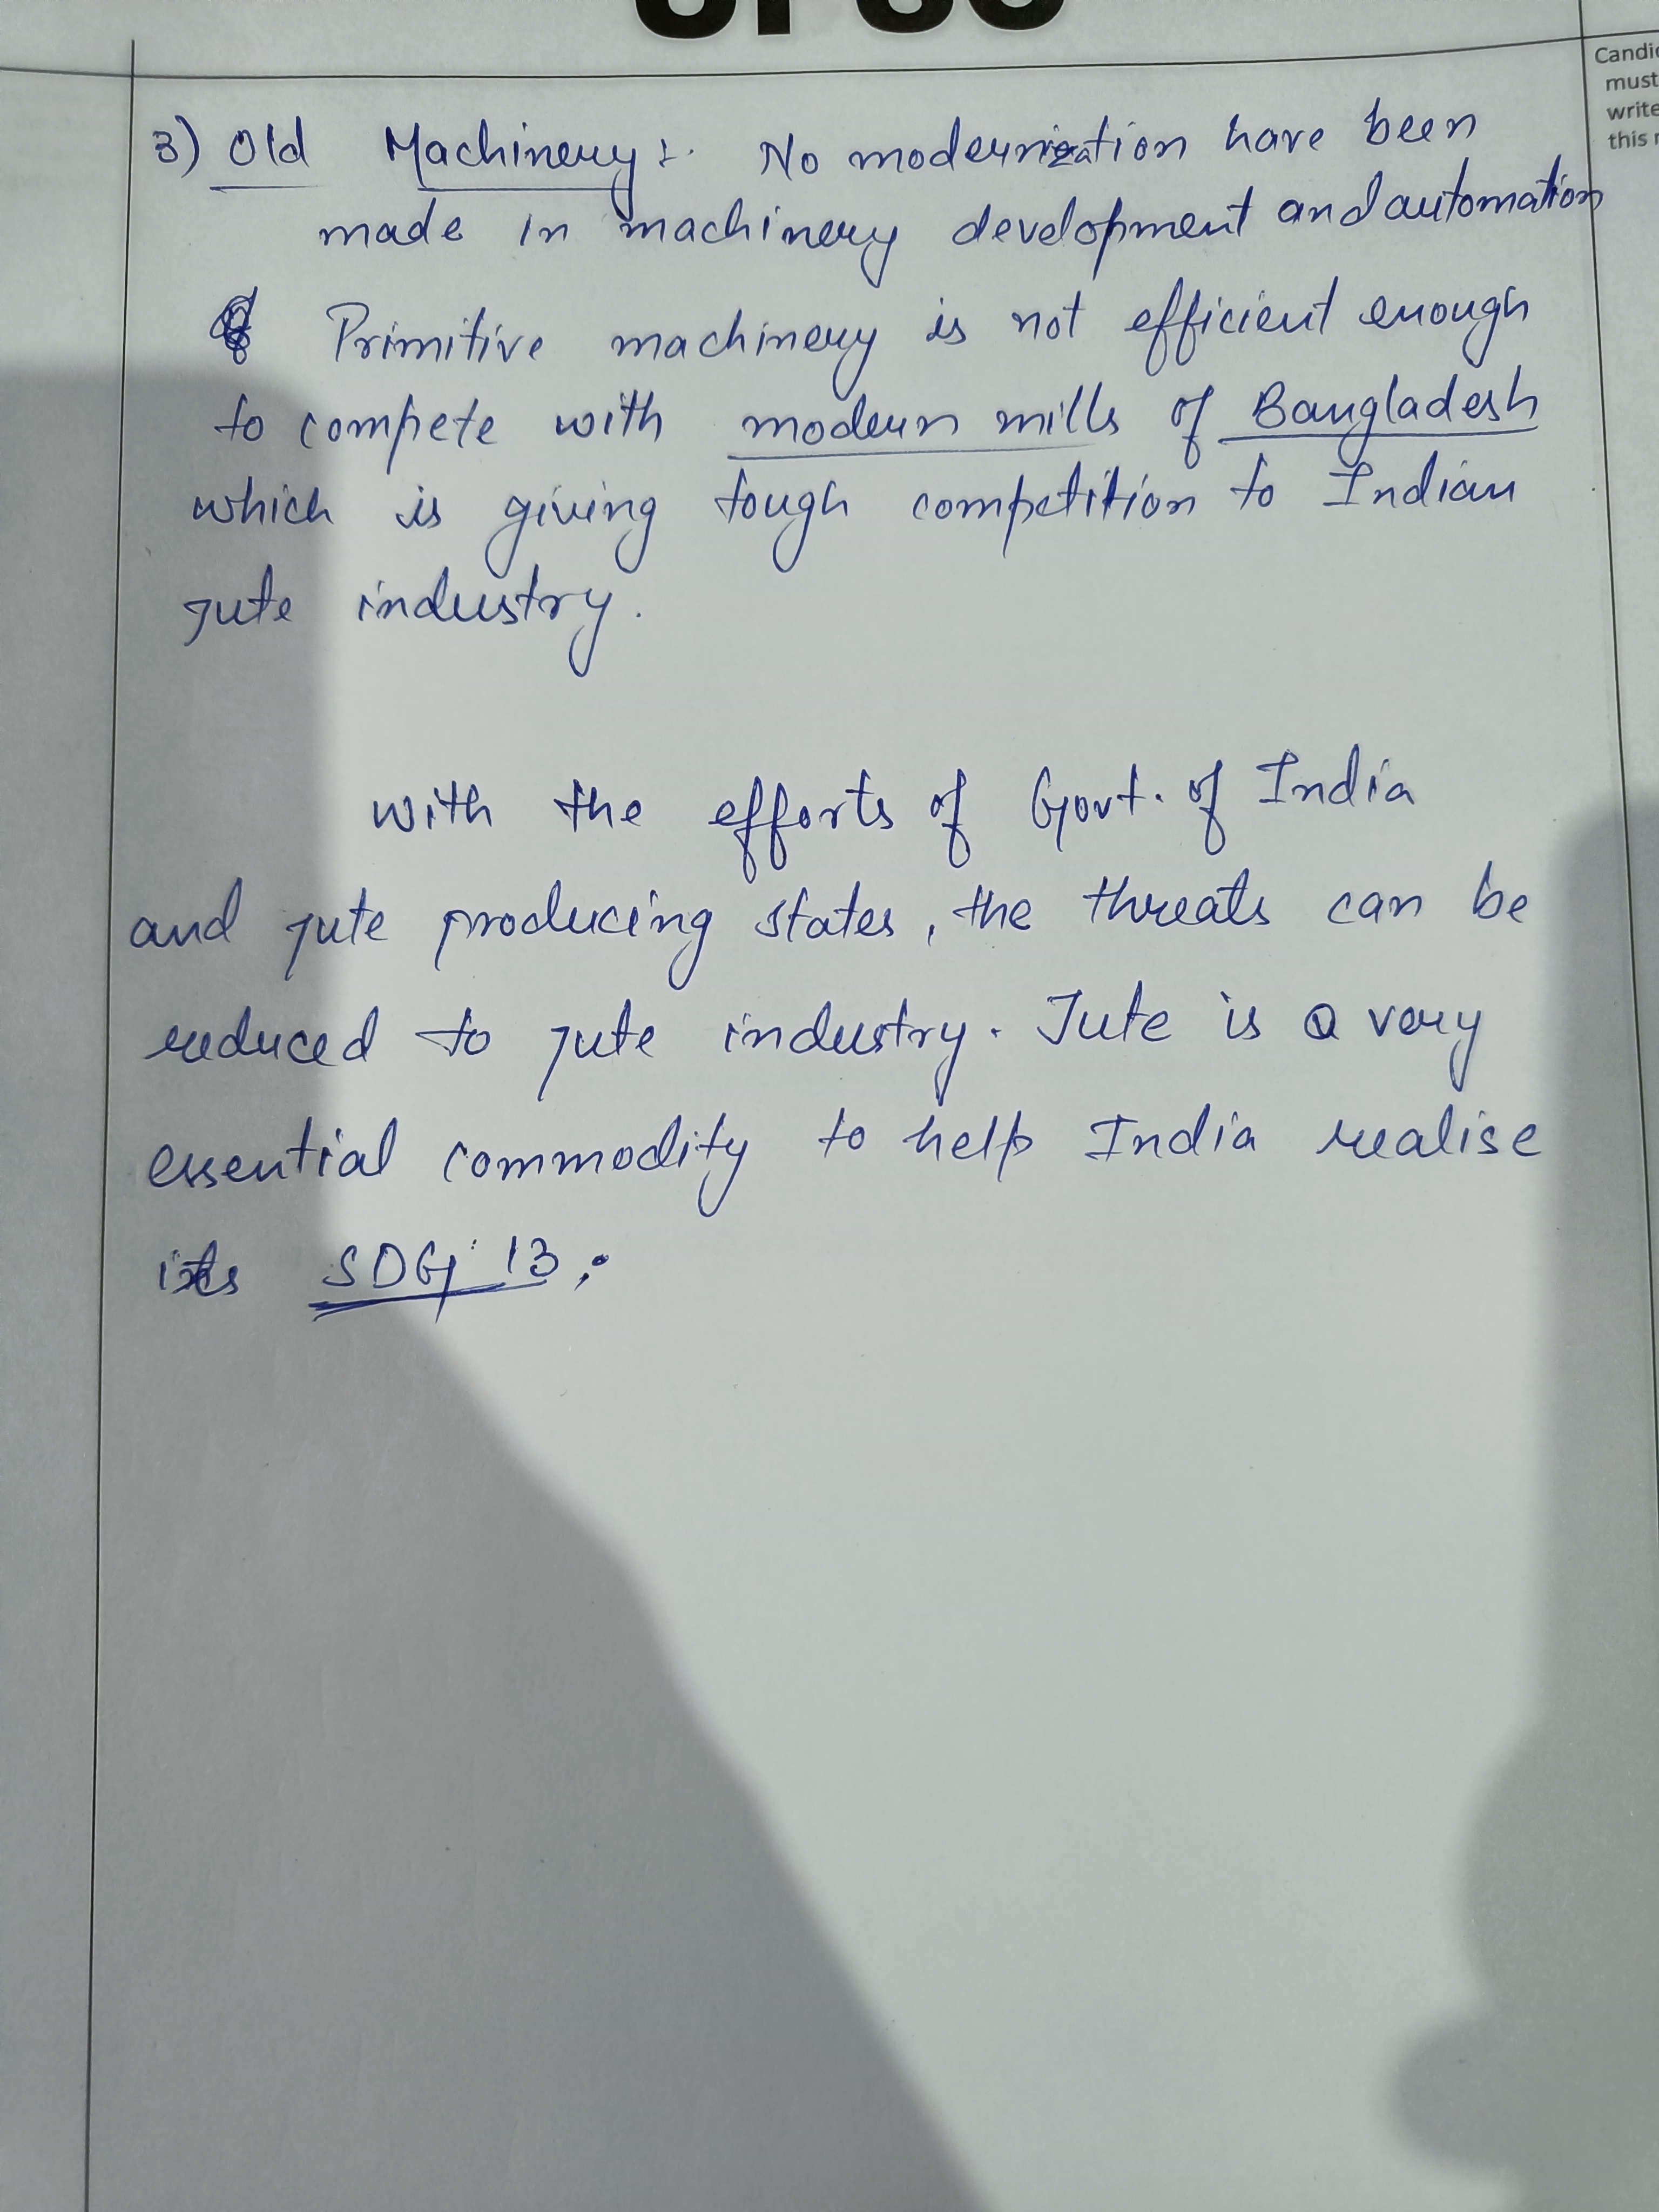 UPSC
Candi
must
write
this
3) Old Machinery :- No modernization have been
made in machinery development and automation
Primitive machinery is not efficient enough
to compete with modern mills of Bangladesh
which is giving tough competition to Indian
jute industry.
With the efforts of Govt. of India
and jute producing states, the threats can be
reduced to jute industry. Jute is a very
essential commodity to help India realise
its SDG 13.